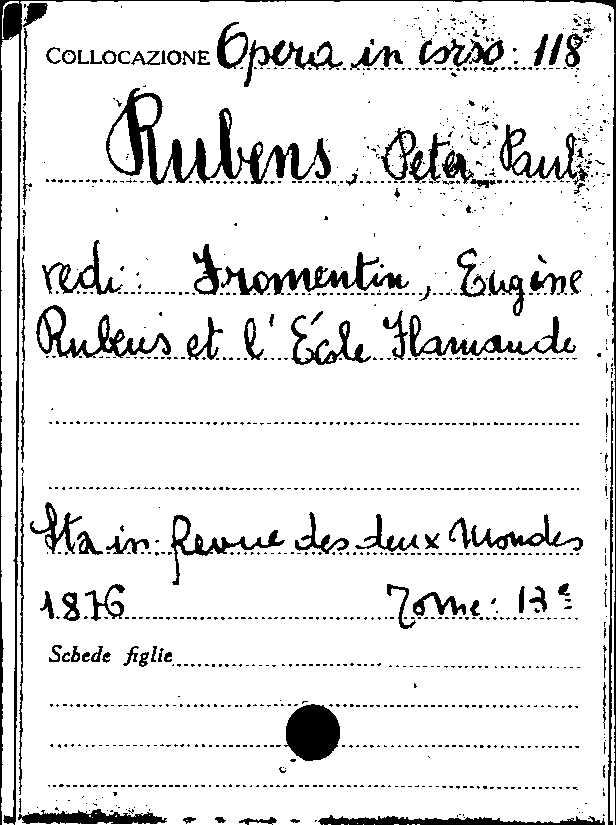 COLLOCAZIONE Opera in corso: 118
Rubens, Peter Paul
vedi: Fromentin, Eugène
Rubens et l'École Flamande
Sta in: Revue des deux Mondes
1876 Tome: 13e
Schede figlie